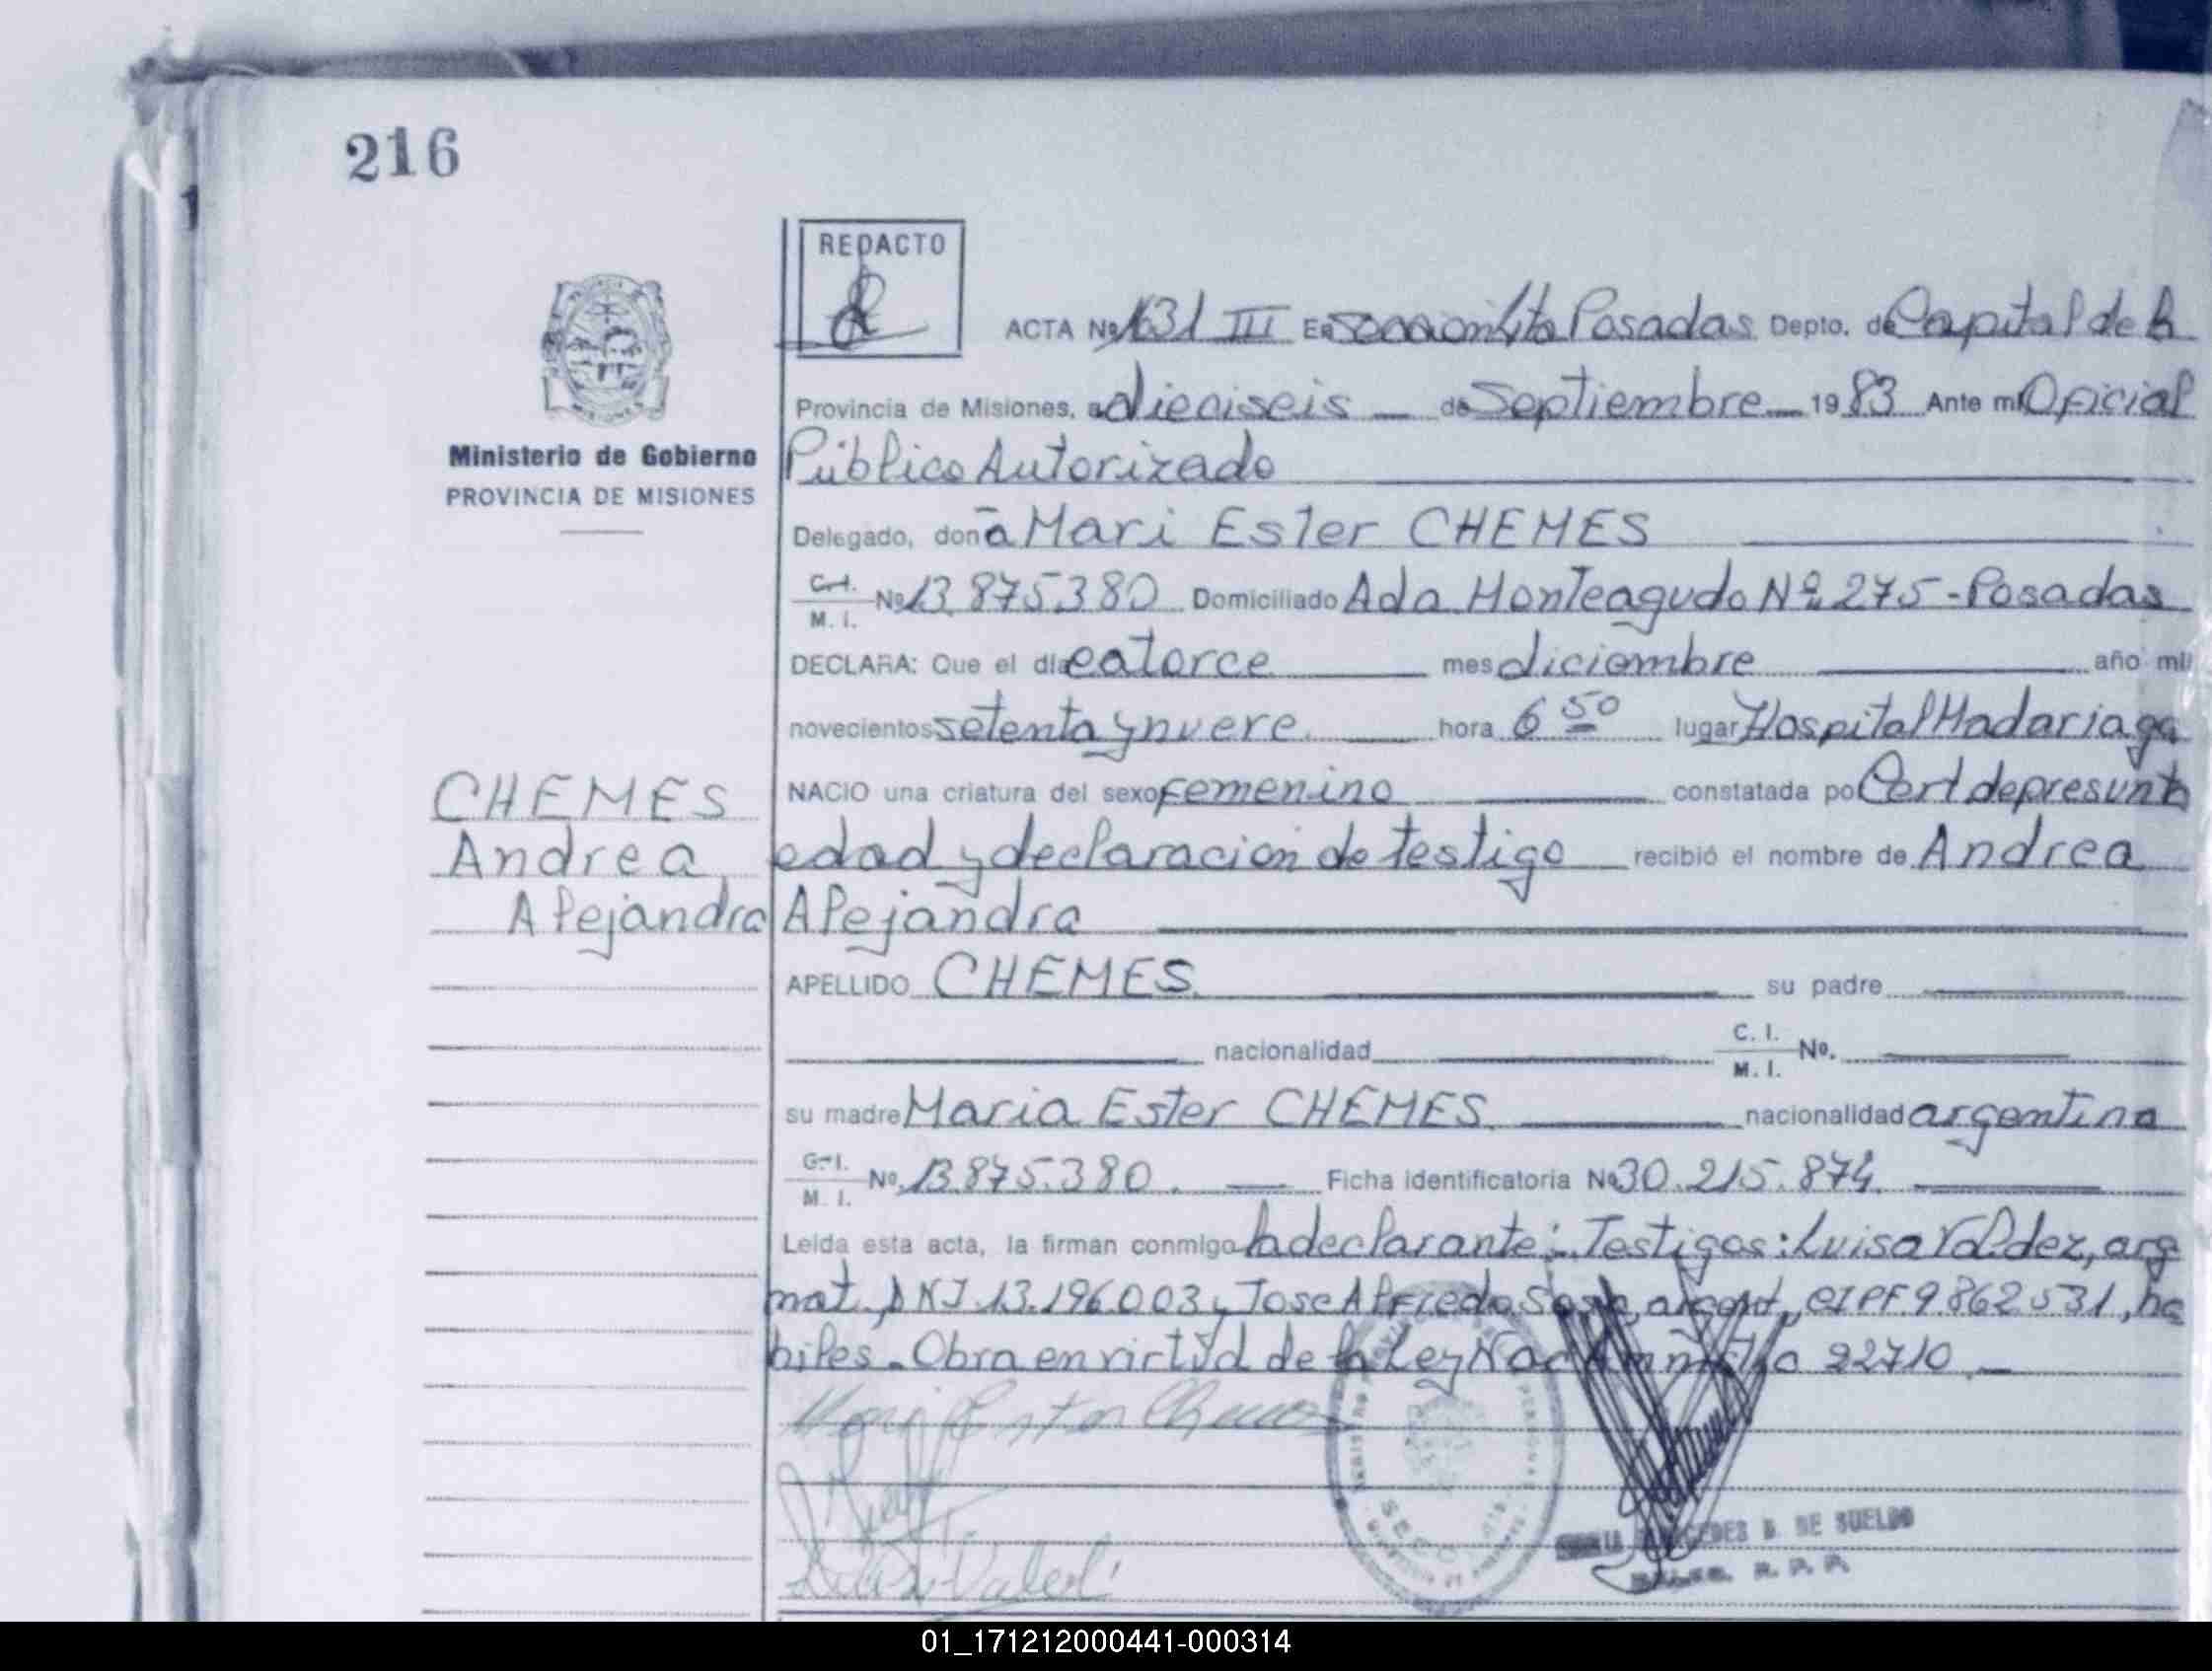 216
REDACTO
ACTA Nº 1631 III En Sección 4ta Posadas Depto. de Capital de la
Provincia de Misiones, a dieciseis de Septiembre 1983 Ante mi Oficial
Ministerio de Gobierno
Público Autorizado
PROVINCIA DE MISIONES
Delegado, doña Mari Ester CHEMES
C.I. M. I. Nº 13.875.380 Domiciliado Ada Monteagudo Nº 275 - Posadas
DECLARA: Que el día catorce mes diciembre año mil
novecientos setenta y nueve hora 6 50 lugar Hospital Madariaga
CHEMES
NACIO una criatura del sexo femenino constatada po Cert de presunta
Andrea
edad y declaración de testigo recibió el nombre de Andrea
Alejandra
Alejandra
APELLIDO CHEMES su padre
nacionalidad C. I. M. I. No.
su madre Maria Ester CHEMES nacionalidad argentina
C.I. M. I. Nº 13.875.380. Ficha identificatoria Nº 30.215.874
Leida esta acta, la firman conmigo la declarante: Testigos: Luisa Valdez, arg
mat. DNI 13.196.003 y Jose Alfredo Sosa, argent, CIPF 9.862.531, ha
biles. Obra en virtud de la Ley Nac 22710
Mari Ester Chemes
MERCEDES B. DE SUELDO
R. P. P.
01_171212000441-000314